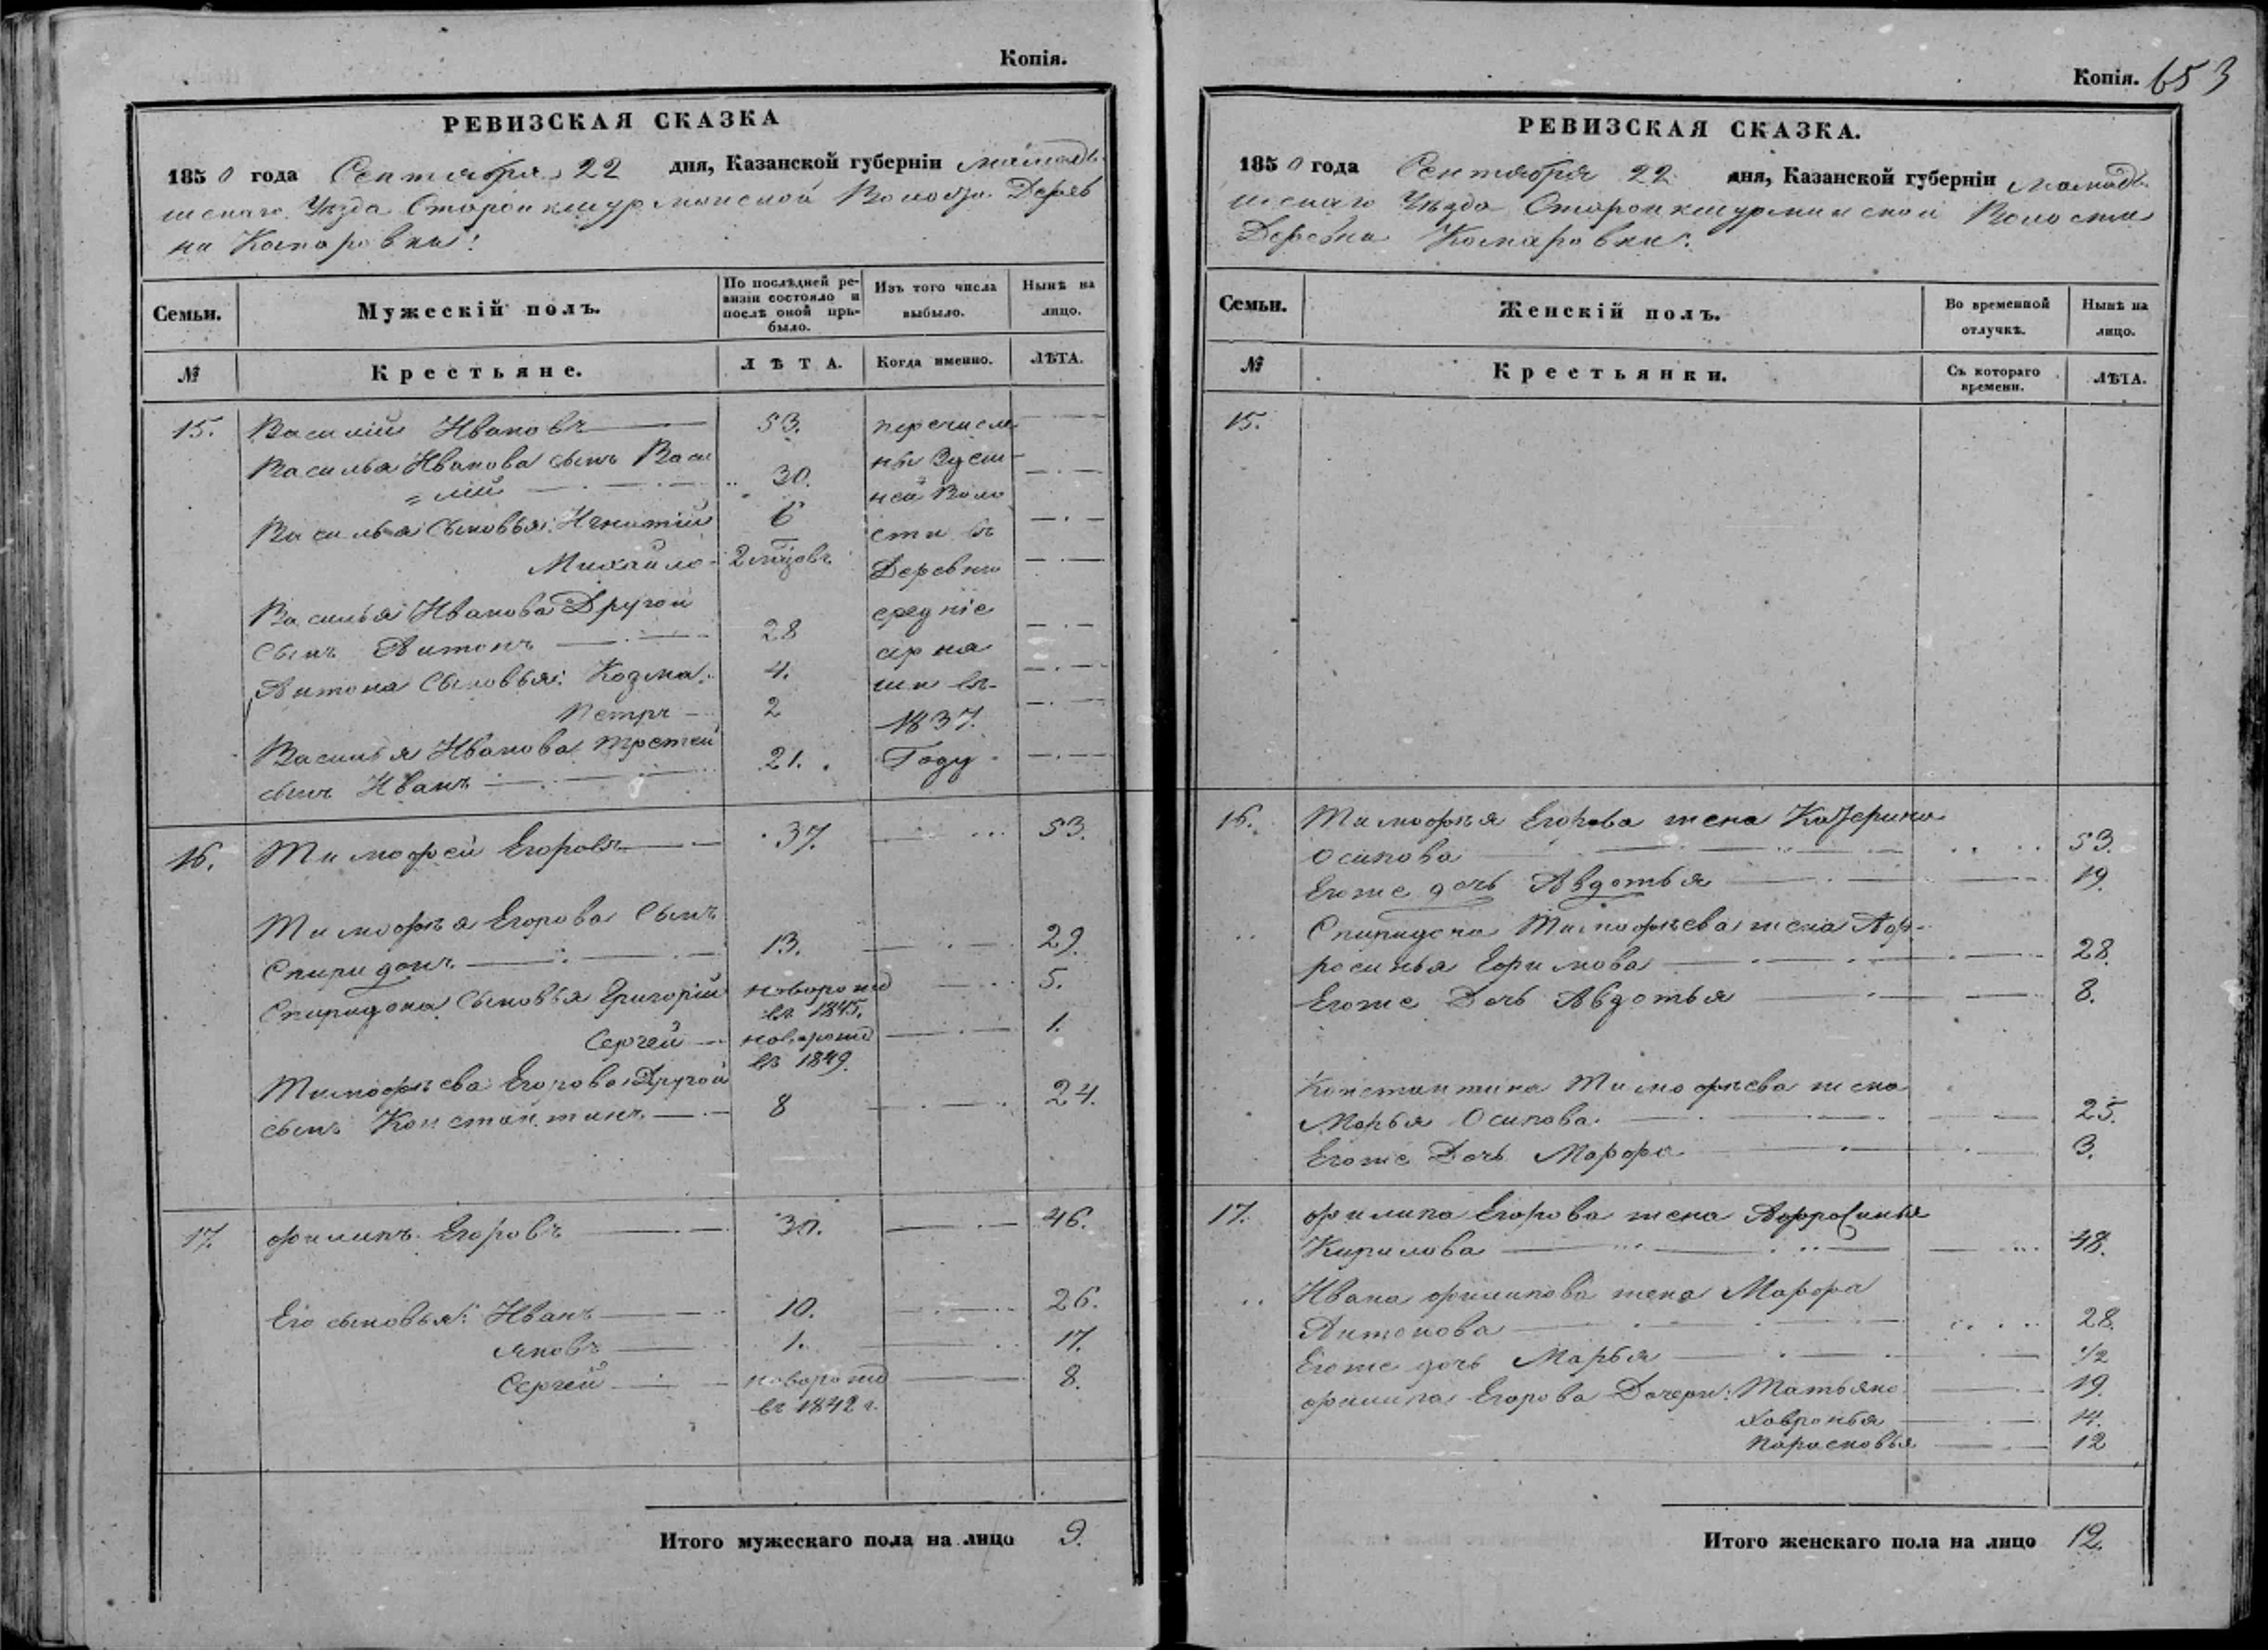 Копія.
РЕВИЗСКАЯ СКАЗКА
1850 года Сентября 22 дня, Казанской губерніи Мамады-
шскаго Уѣзда Старокишурминской Волости Дерев
ни Комаровки:
Семьи. Мужескій полъ. По послѣдней ре-визіи состояло и послѣ оной при-было. Изъ того числа выбыло. Нынѣ на лицо.
№ Крестьяне. ЛѢТА. Когда именно. ЛѢТА.
15. Василій Ивановъ 53. перечисле
Василья Иванова сынъ Васи ны здѣш-
=лій 30. ней Воло
Василья сыновья: Игнатій 6 сти въ
Михайло 2 мцовъ Деревню
Василья Иванова Другой средніе
сынъ Антонъ 28
Антона сыновья: Козма. 4. ши въ
Петръ 2 1837.
Василья Иванова третей
сынъ Иванъ 21. Году
16. Тимофей Егоровъ 37. 53.
Тимофѣя Егорова сынъ
Спиридонъ 13. 29.
Спиридона сыновья Григорій новорожд 5.
въ 1845.
Сергей новорожд 1.
въ 1849.
Тимофѣева Егорова Другой
сынъ Константинъ 8 24.
17. Филипъ Егоровъ 30. 46.
Его сыновья: Иванъ 10. 26.
Яковъ 1. 17.
Сергей новорожд 8.
въ 1842 г.
Итого мужескаго пола на лицо 9.
Копія. 653
РЕВИЗСКАЯ СКАЗКА.
1850 года Сентября 22 дня, Казанской губерніи Мамады-
шскаго Уѣзда Старокишурминской Волости
Деревни Комаровки:
Семьи. Женскій полъ. Во временной отлучкѣ. Нынѣ на лицо.
№ Крестьянки. Съ котораго времени. ЛѢТА.
15.
16. Тимофѣя Егорова жена Катерина
Осипова 53.
Егоже дочь Авдотья 19.
Спиридона Тимофѣева жена Аф-
росинья Ефимова 28.
Егоже Дочь Авдотья 8.
Константина Тимофѣева жена
Марья Осипова. 25.
Егоже Дочь Марфа 3.
17. Филипа Егорова жена Афросинья
Кирилова 48.
Ивана Филипова жена Марфа
Антонова 28.
Егоже дочь Марья 1/2
Филипа Егорова Дочери: Татьяна 19.
Хавронья 14.
Парасковья 12
Итого женскаго пола на лицо 12.